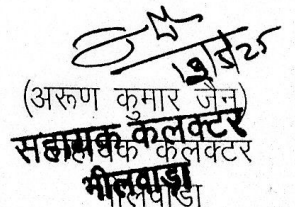 (अरूण कुमार जैन)
सहायक कलक्टर
सहायक कलक्टर
भीलवाड़ा
भीलवाड़ा